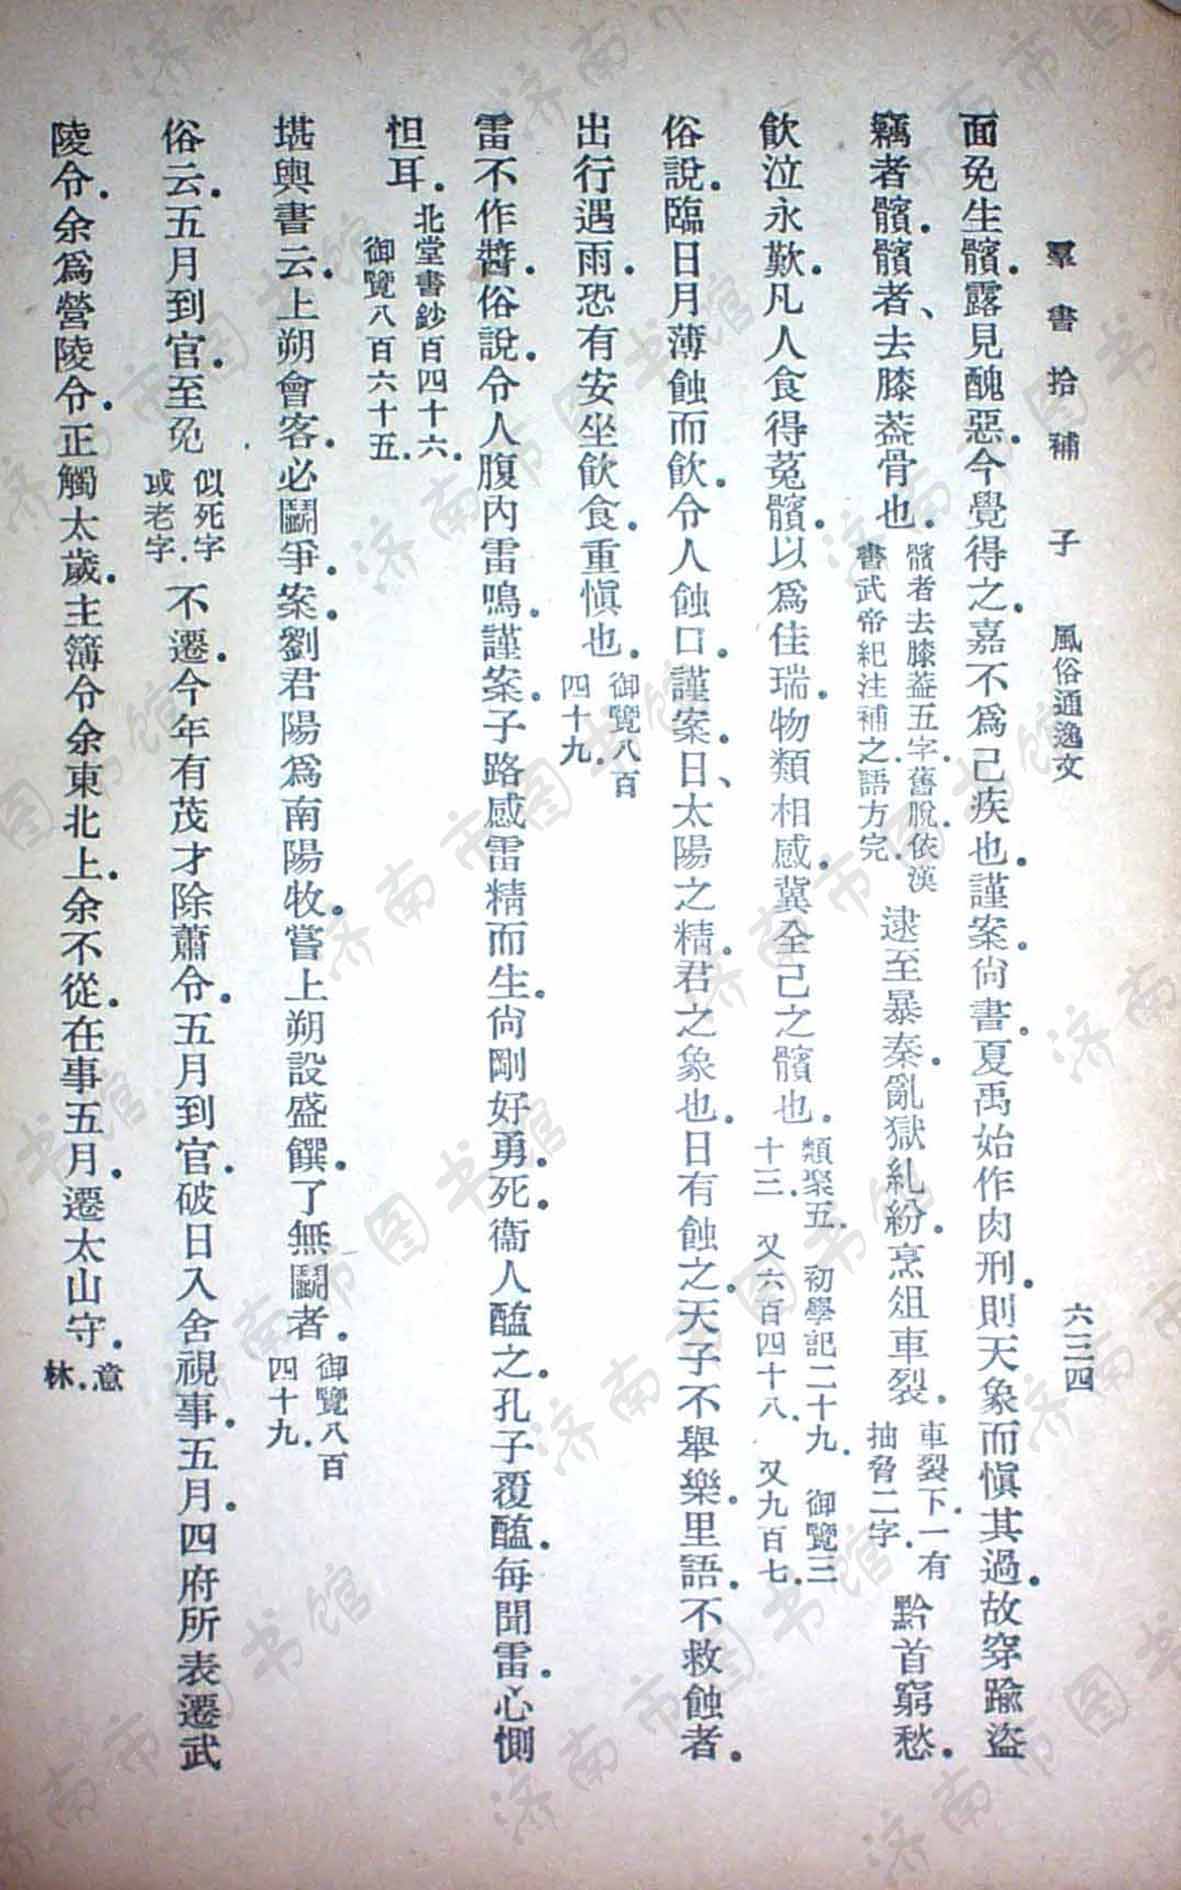 羣書拾補 子 風俗通逸文 六三四
面免生髕．露見醜惡．今覺得之．嘉不爲己疾也．謹案．尙書．夏禹始作肉刑．則天象而愼其過．故穿踰盜
竊者髕．髕者、去膝葢骨也．髕者去膝葢五字．舊脫．依漢書武帝紀注補之．語方完．逮至暴秦．亂獄糺紛．烹俎車裂．車裂下．一有抽脅二字．黔首窮愁．
飮泣永歎．凡人食得菟髕．以爲佳瑞．物類相感．冀全己之髕也．類聚五．初學記二十九．御覽三十三．又六百四十八．又九百七．
俗說．臨日月薄蝕而飮．令人蝕口．謹案．日、太陽之精．君之象也．日有蝕之．天子不舉樂．里語．不救蝕者．
出行遇雨．恐有安坐飮食．重愼也．御覽八百四十九．
雷不作醬．俗說．令人腹內雷鳴．謹案．子路感雷精而生．尙剛好勇．死．衞人醢之．孔子覆醢．每聞雷．心惻
怛耳．北堂書鈔百四十六．御覽八百六十五．
堪輿書云．上朔會客．必鬭爭．案．劉君陽爲南陽牧．嘗上朔設盛饌．了無鬭者．御覽八百四十九．
俗云．五月到官．至免似死字或老字．不遷．今年有茂才除蕭令．五月到官．破日入舍視事．五月．四府所表．遷武
陵令．余爲營陵令．正觸太歲．主簿令余東北上．余不從．在事五月．遷太山守．意林．
济南市图书馆